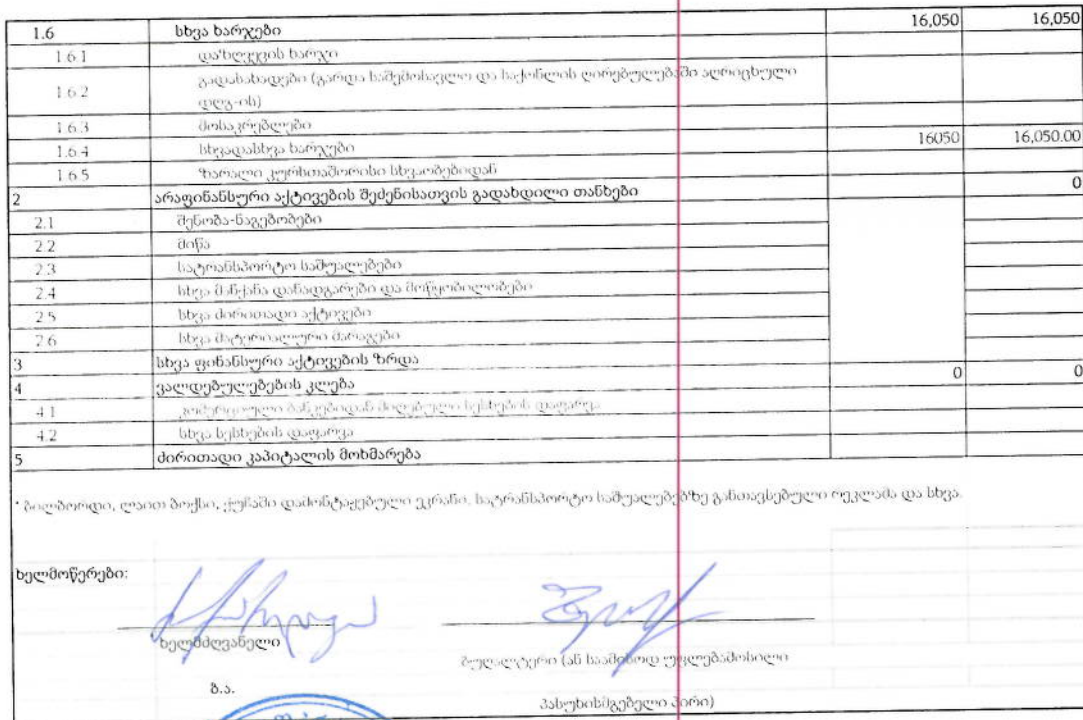 1.6 სხვა ხარჯები 16,050 16,050
1.6.1 დაზღვევის ხარჯი
1.6.2 გადასახადები (გარდა საშემოსავლო და საქონლის ღირებულებაში აღრიცხული
დღგ-ის)
1.6.3 მოსაკრებლები
1.6.4 სხვადასხვა ხარჯები 16050 16,050.00
1.6.5 ზარალი კურსთაშორისი სხვაობებიდან
2 არაფინანსური აქტივების შეძენისათვის გადახდილი თანხები 0
2.1 შენობა-ნაგებობები
2.2 მიწა
2.3 სატრანსპორტო საშუალებები
2.4 სხვა მანქანა დანადგარები და მოწყობილობები
2.5 სხვა ძირითადი აქტივები
2.6 სხვა მატერიალური მარაგები
3 სხვა ფინანსური აქტივების ზრდა
4 ვალდებულებების კლება 0 0
4.1 კომერციული ბანკებიდან მიღებული სესხების დაფარვა
4.2 სხვა სესხების დაფარვა
5 ძირითადი კაპიტალის მოხმარება
* ბილბორდი, ლაით ბოქსი, ქუჩაში დამონტაჟებული ეკრანი, სატრანსპორტო საშუალებებზე განთავსებული რეკლამა და სხვა.
ხელმოწერები:
ხელმძღვანელი
ბუღალტერი (ან საამისოდ უფლებამოსილი
ბ.ა.
პასუხისმგებელი პირი)